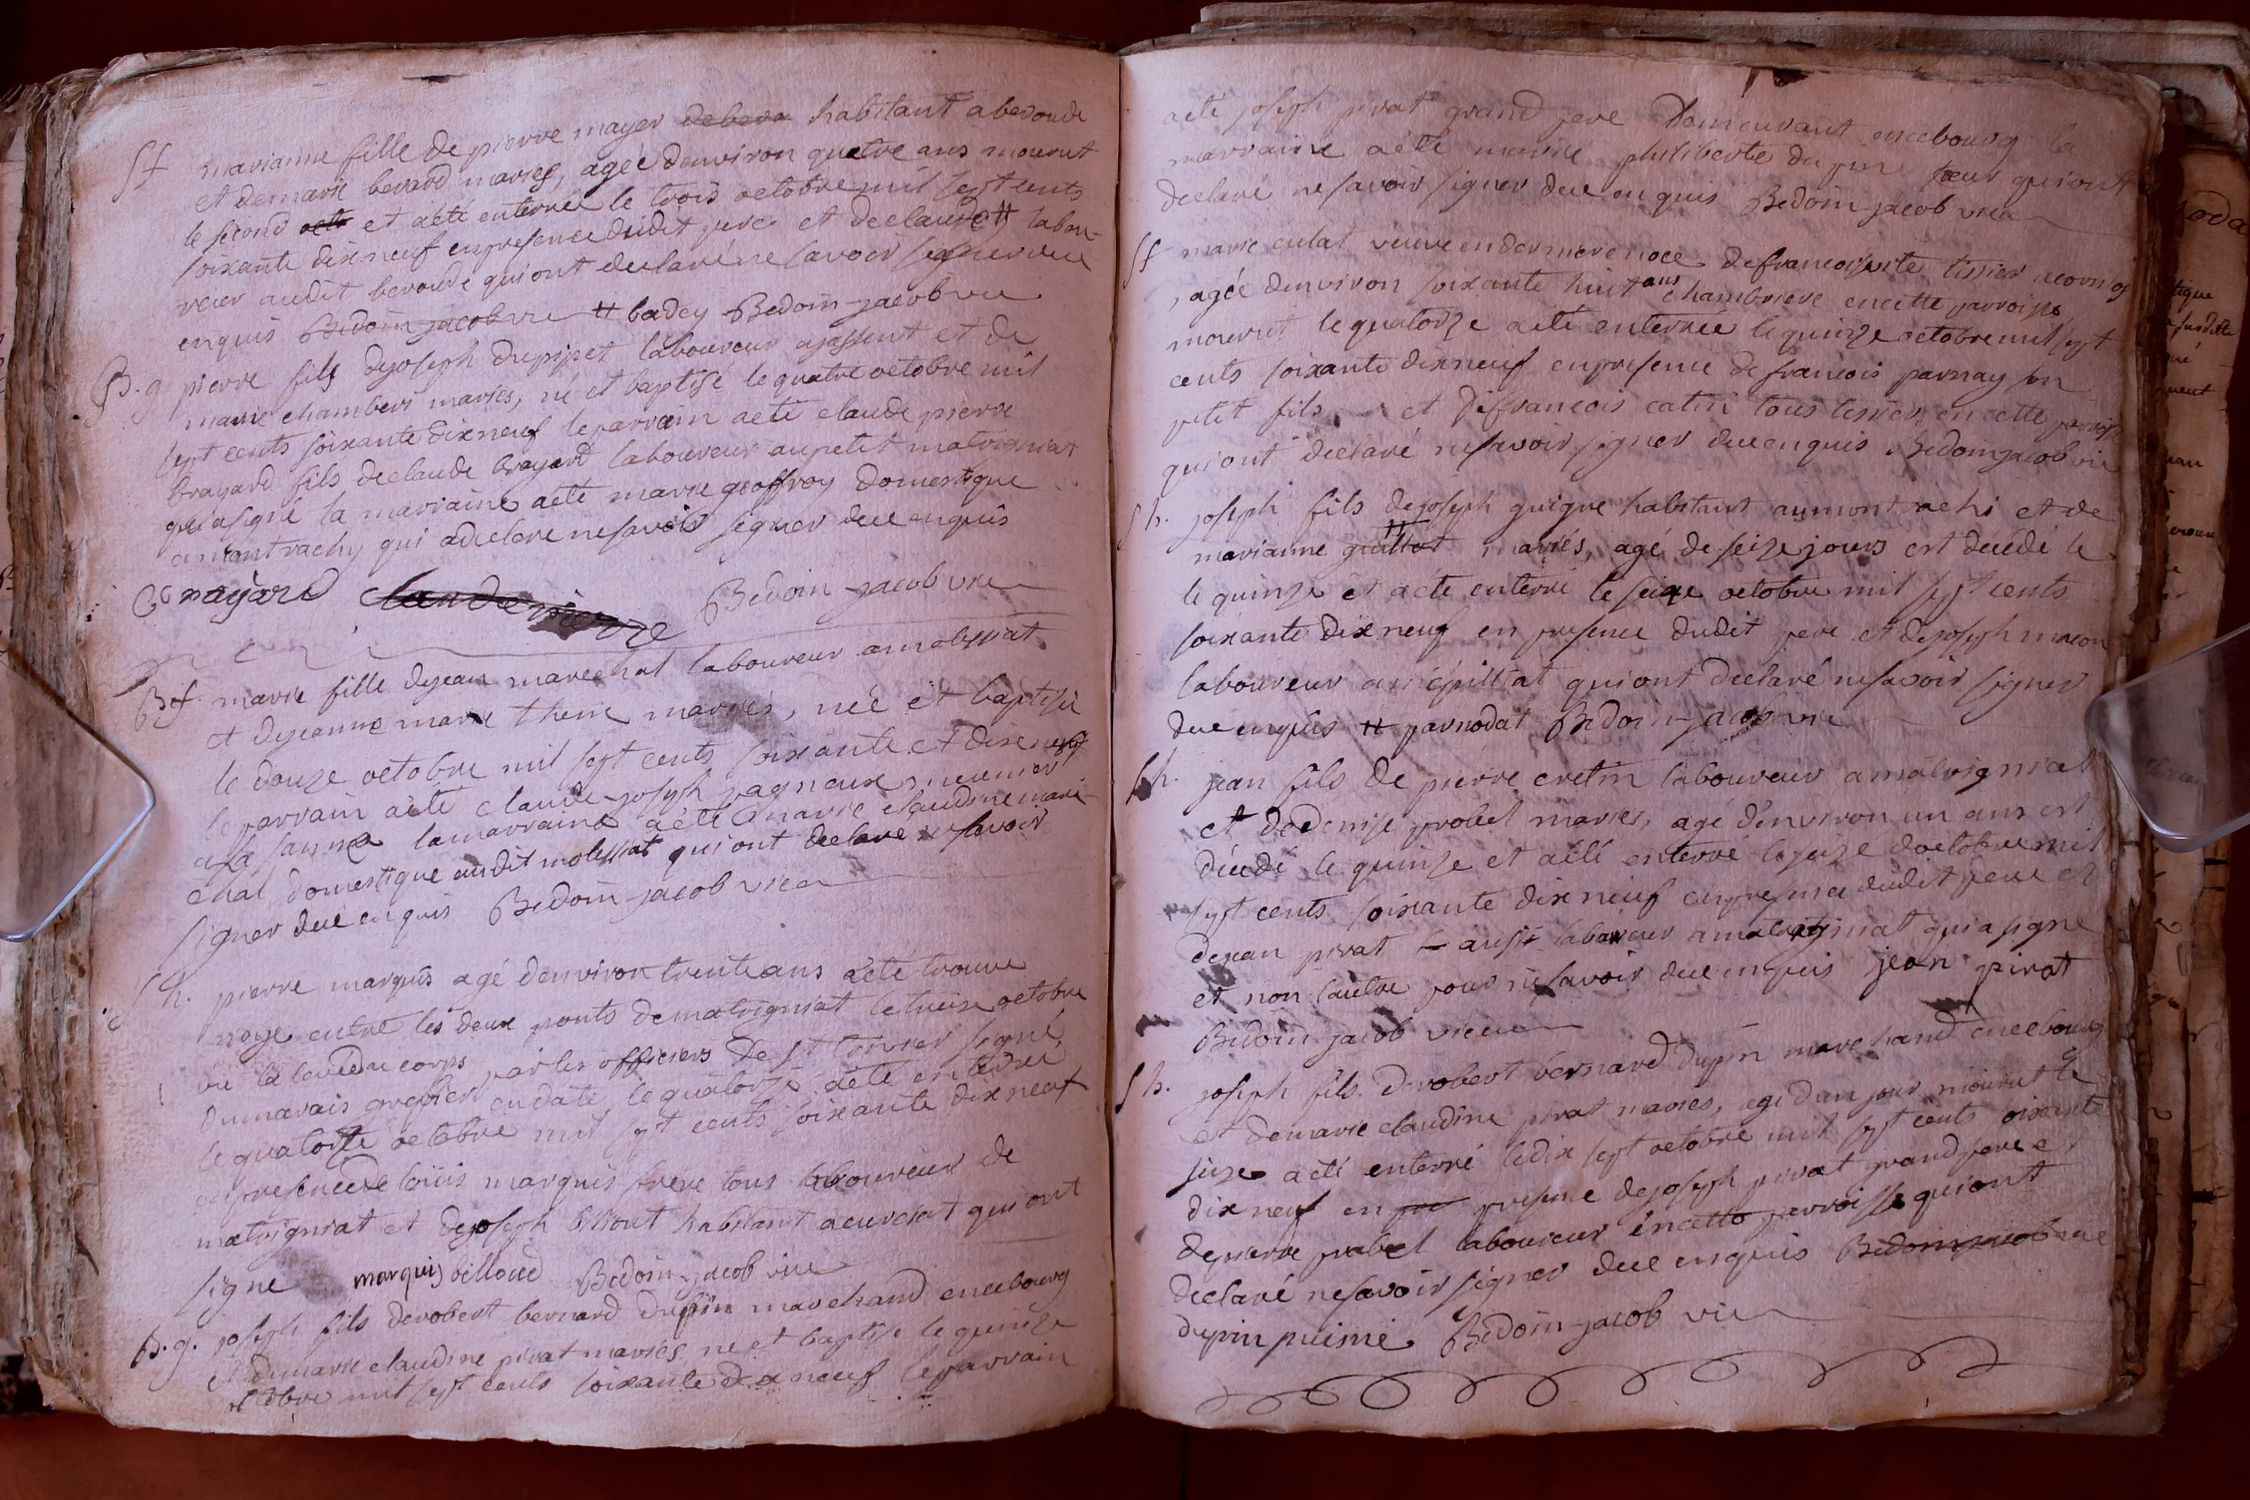 Sf marianne fille de pierre mayer debero habitant a beroude
et de marie berard mariés, agée denviron quatre ans mourut
le second octo et aété enterrée le trois octobre mil sept cents
soixante dix neuf en presence dudit pere et de claude # labou-
reur audit beroude qui ont declaré ne savoir signer de ce
enquis Bedoin jacob vic # badey Bedoin jacob vic
B. g. pierre fils de joseph dupipet laboureur a jassent et de
marie chambers mariés, né et baptisé le quatre octobre mil
sept cents soixante dix neuf le parrain aeté claude pierre
brayard fils de claude brayard laboureur au petit matrigniat
qui a signé la marraine aeté marie geoffroy domestique
a montrachy qui a declaré ne savoir signer de ce enquis
Brayard claude pierre Bedoin jacob vic
Bf. marie fille de jean marechal laboureur a molissiat
et de jeanne marie mariés, née et baptisée
le douze octobre mil sept cents soixante et dix neuf
le parrain aeté claude joseph pagneux meunier
a la marraine aeté marie claudine mare-
chal domestique audit molissiat qui ont declaré ne savoir
signer de ce enquis Bedoin jacob vic
S h. pierre marquis agé denviron trente ans aeté trouvé
noyé entre les deux ponts de matrigniat le treize octobre
vu la levée du corps par les officiers de St trivier signé
dumarais greffier en date le quatorze aeté enterré
le quatorze octobre mil sept cents soixante dix neuf
en presence de loüis marquis frere tous laboureur de
matrigniat et de joseph billout habitant a curciat qui ont
signé marquis billoud Bedoin jacob vic
B. g. joseph fils de robert bernard dupin marchand en ce bourg
et de marie claudine pirat mariés né et baptisé le quinze
octobre mil sept cents soixante dix neuf le parrain
aeté joseph pirat grand pere demeurant en ce bourg la
marraine aeté marie philiberte du pin soeur qui ont
declaré ne savoir signer de ce enquis Bedoin jacob vic
Sf marie culat veuve en derniere noce de francois tissier a cormoz
agée denviron soixante huit ans chambriere en cette parroisse
mourut le quatorze aeté enterrée le quinze octobre mil sept
cents soixante dix neuf en presence de francois parnay son
petit fils et de francois catin tous tissiers en cette parroisse
qui ont declaré ne savoir signer de ce enquis Bedoin jacob vic
S h. joseph fils de joseph guigue habitant au mont rachi et de
marianne guillot # mariés, agé de seize jours est decedé le
le quinze et aeté enterré le seize octobre mil sept cents
soixante dix neuf en presence dudit pere et de joseph macon
laboureur au épillat qui ont declaré ne savoir signer
de ce enquis # parnodat Bedoin jacob vic
S h. jean fils de pierre cretin laboureur a matrigniat
et de denise mariés, agé denviron un ans est
decedé le quinze et aeté enterré le seize doctobre mil
sept cents soixante dix neuf en presence dudit pere et
de jean pirat aussi laboureur a matrigniat qui a signé
et non lautre pour ne savoir de ce enquis jean pirat
Bedoin jacob vic
S h. joseph fils de robert bernard dupin marchand en ce bourg
et de marie claudine pirat mariés, agé dun jour mourut le
seize aeté enterré le dix sept octobre mil sept cents soixante
dix neuf en pre presence de joseph pirat grand pere et
de pierre laboureur en cette parroisse qui ont
declaré ne savoir signer de ce enquis Bedoin jacob vic
dupin puisné Bedoin jacob vic